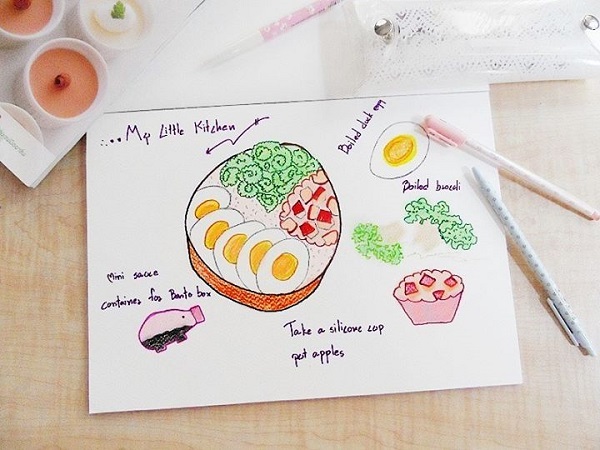 My Little Kitchen
Boiled duck egg
Boiled brocoli
Mini sauce
container for Bento box
Take a silicone cup
put apples